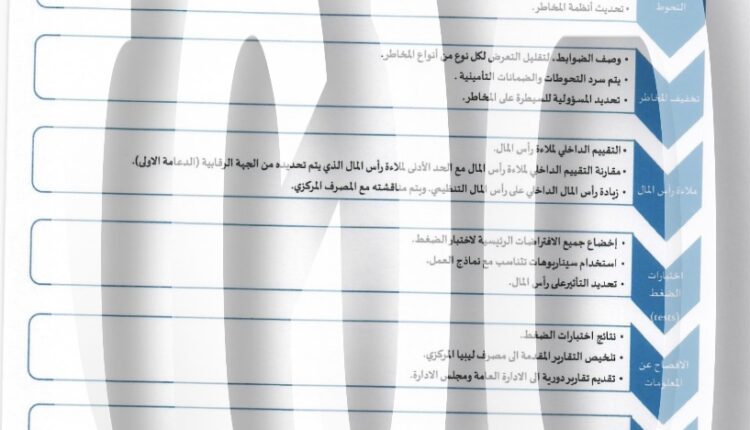 التحوط
• تحديث أنظمة المخاطر.
تخفيف المخاطر
• وصف الضوابط، لتقليل التعرض لكل نوع من أنواع المخاطر.
• يتم سرد التحوطات والضمانات التأمينية .
• تحديد المسؤولية للسيطرة على المخاطر.
ملاءة رأس المال
• التقييم الداخلي لملاءة رأس المال.
• مقارنة التقييم الداخلي لملاءة رأس المال مع الحد الأدنى لملاءة رأس المال الذي يتم تحديده من الجهة الرقابية (الدعامة الاولى).
• زيادة رأس المال الداخلي على رأس المال التنظيمي. ويتم مناقشته مع المصرف المركزي.
اختبارات
الضغط
(tests)
• إخضاع جميع الافتراضات الرئيسية لاختبار الضغط.
• استخدام سيناريوهات تتناسب مع نماذج العمل.
• تحديد التأثيرعلى رأس المال.
الافصاح عن
المعلومات
• نتائج اختبارات الضغط.
• تلخيص التقارير المقدمة الى مصرف ليبيا المركزي.
• تقديم تقارير دورية الى الادارة العامة ومجلس الادارة.